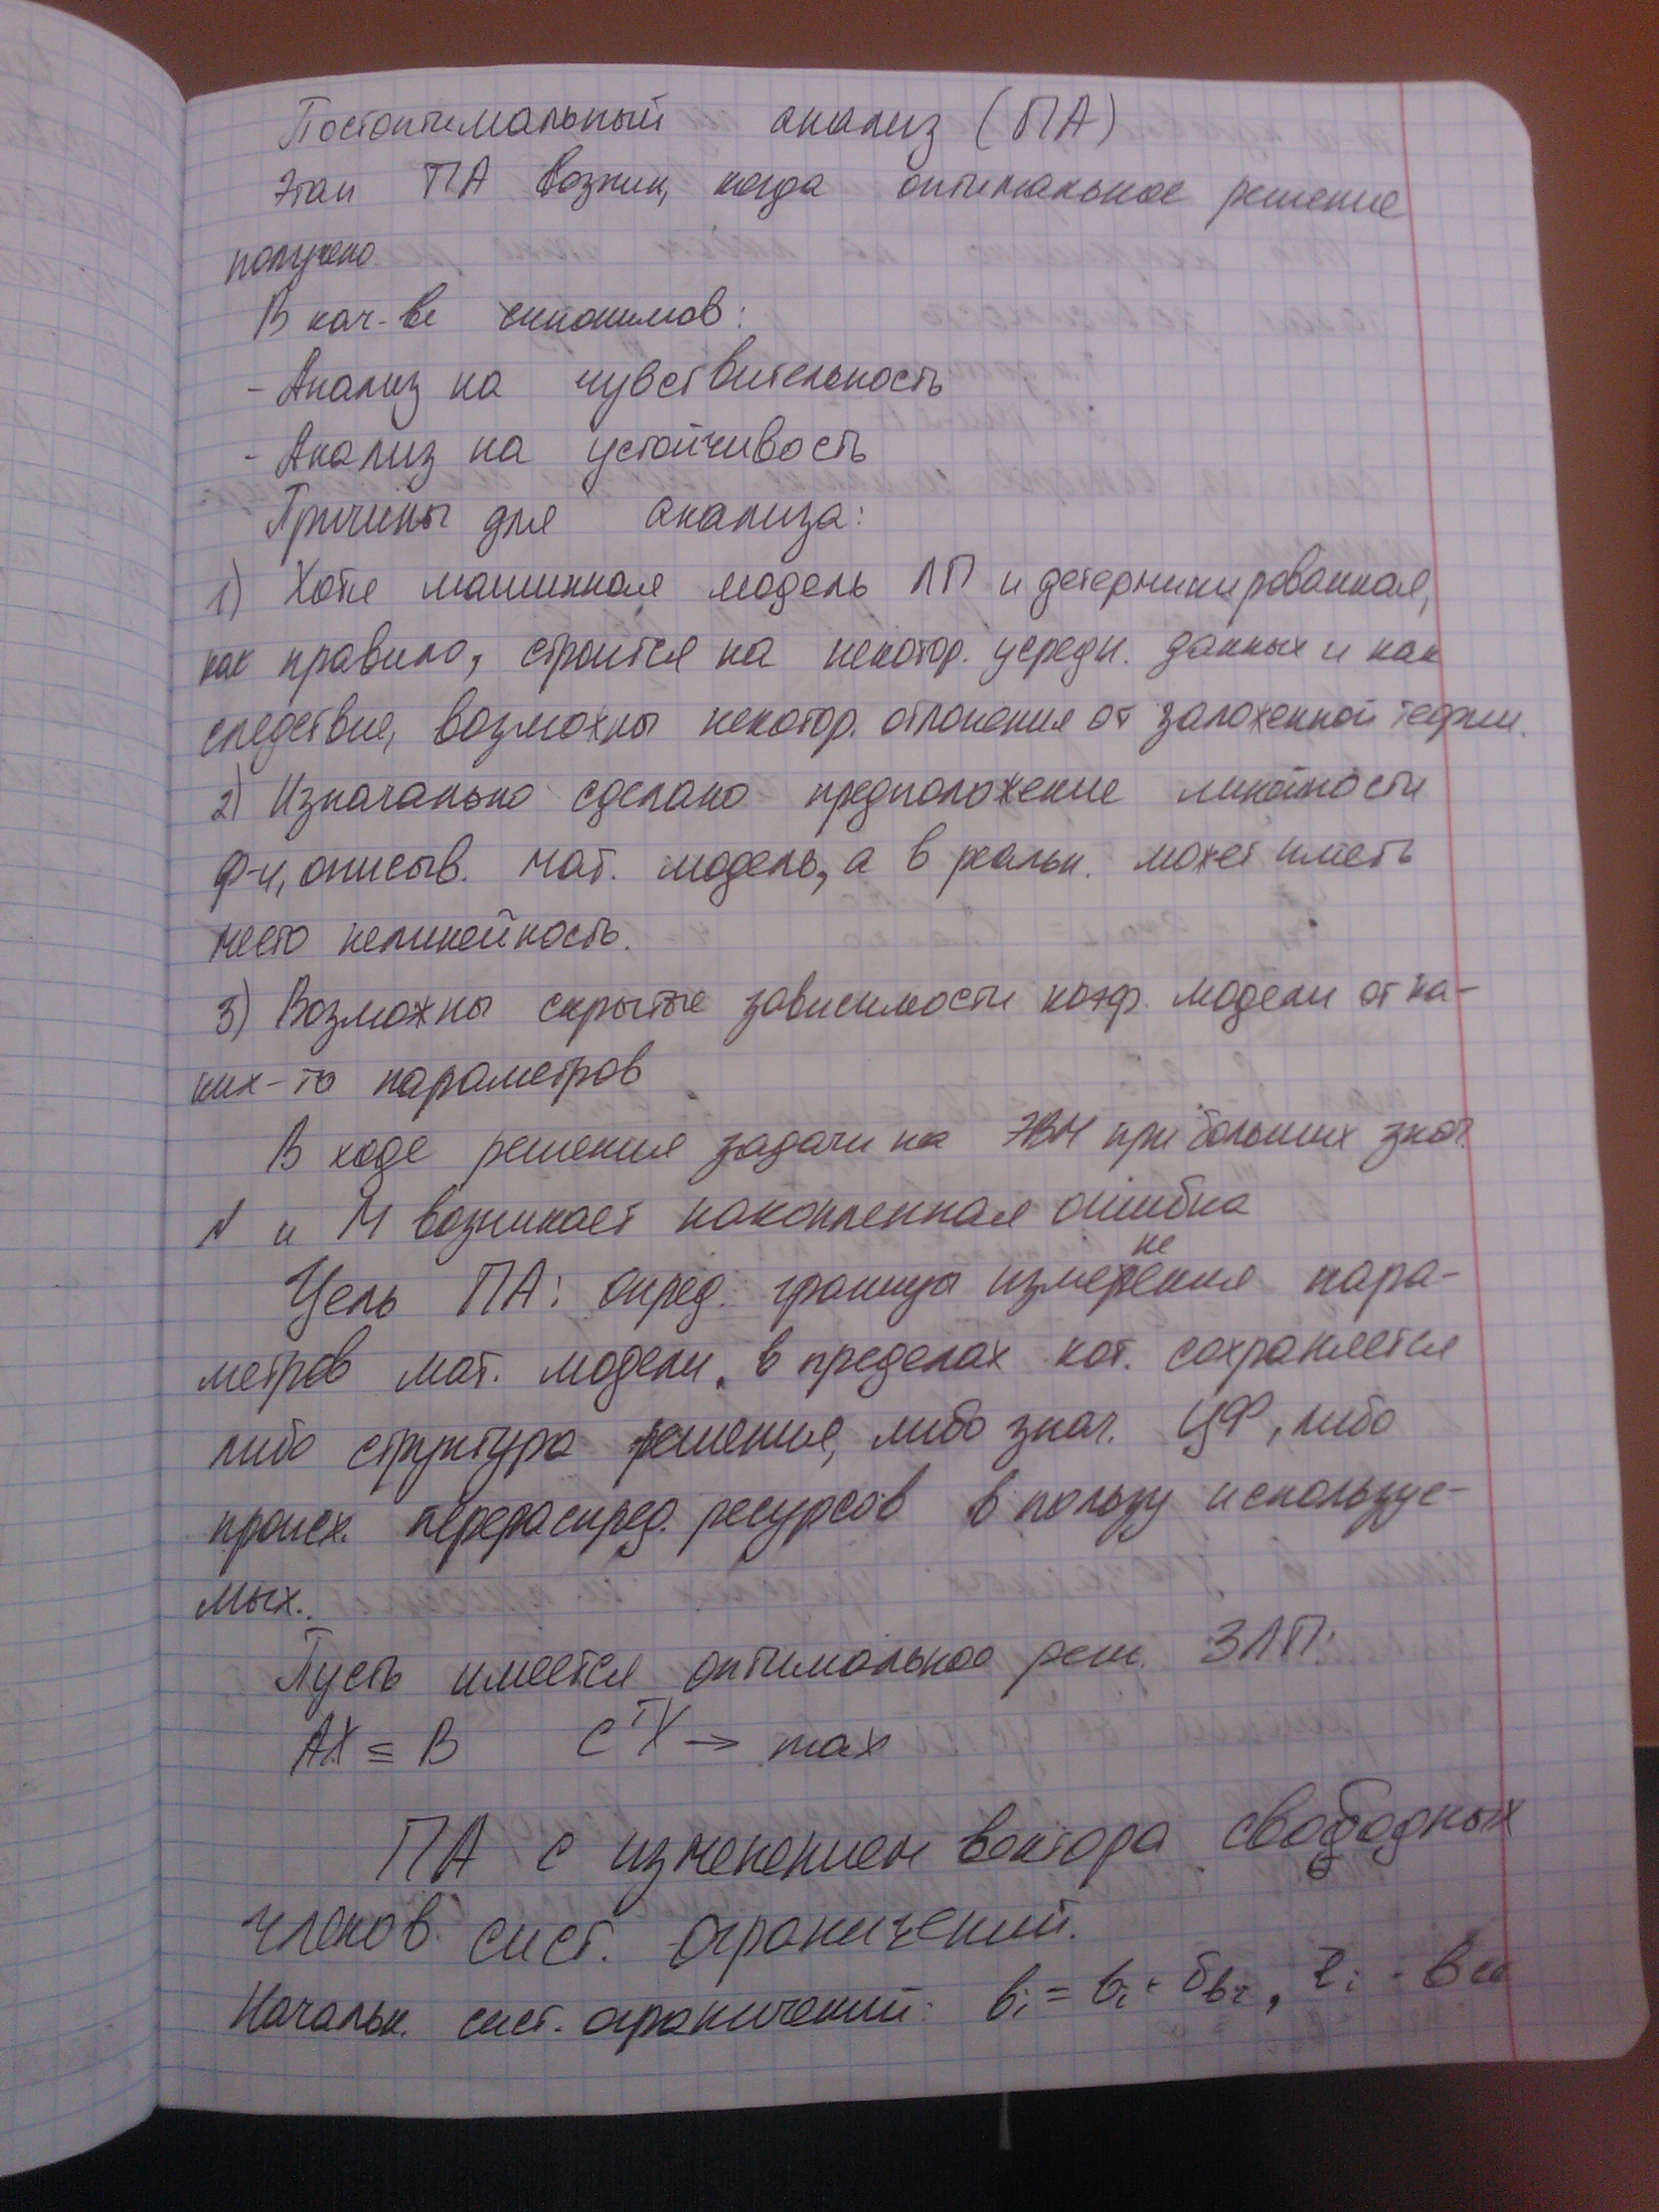 Постоптимальный анализ (ПА)
Этап ПА возник, когда оптимальное решение
получено
В кач-ве синонимов:
- Анализ на чувствительность
- Анализ на устойчивость
Причины для анализа:
1) Хотя машинная модель ЛП и детерминированная,
как правило, строится на некотор. усредн. данных и как
следствие, возможны некотор. отлонения от заложенной теории.
2) Изначально сделано предположение линейности
ф-ч, описыв. мат. модель, а в реальн. может иметь
место нелинейность.
3) Возможны скрытые зависимости коэф. модели от ка-
ких-то параметров
В ходе решения задачи на ЭВМ при больших знач.
N и M возникает накопленная ошибка
Цель ПА: опред. границы изменения пара-
метров мат. модели, в пределах кот. сохраняется
либо структура решения, либо знач. ЦФ, либо
происх. перераспред. ресурсов в пользу используе-
мых.
Пусть имеется оптимальное реш. ЗЛП:
AX ≤ B C^T X → max
ПА с изменением вектора свободных
членов сист. ограничений.
Начальн. сист. ограничений: bi = bi + δbi,